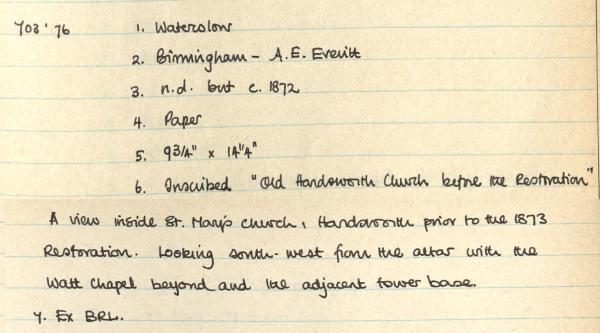 703'76 1. Watercolour
2. Birmingham - A.E. Everitt
3. n.d. but c. 1872
4. Paper
5. 9 3/4" x 14 1/4"
6. Inscribed "Old Handsworth Church before the Restoration"
A view inside St. Mary's church, Handsworth prior to the 1873
Restoration. Looking south-west from the altar with the
Watt Chapel beyond and the adjacent tower base.
7. Ex BRL.